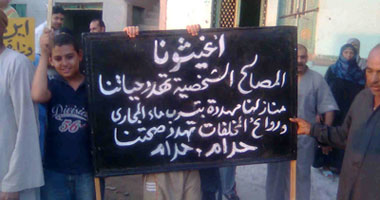 أغيثونا
المصالح الشخصية تهدد حياتنا
منازلنا مهددة بتسرب ماء المجارى
وروائح المخلفات تهدد صحتنا
حرام .. حرام
اين